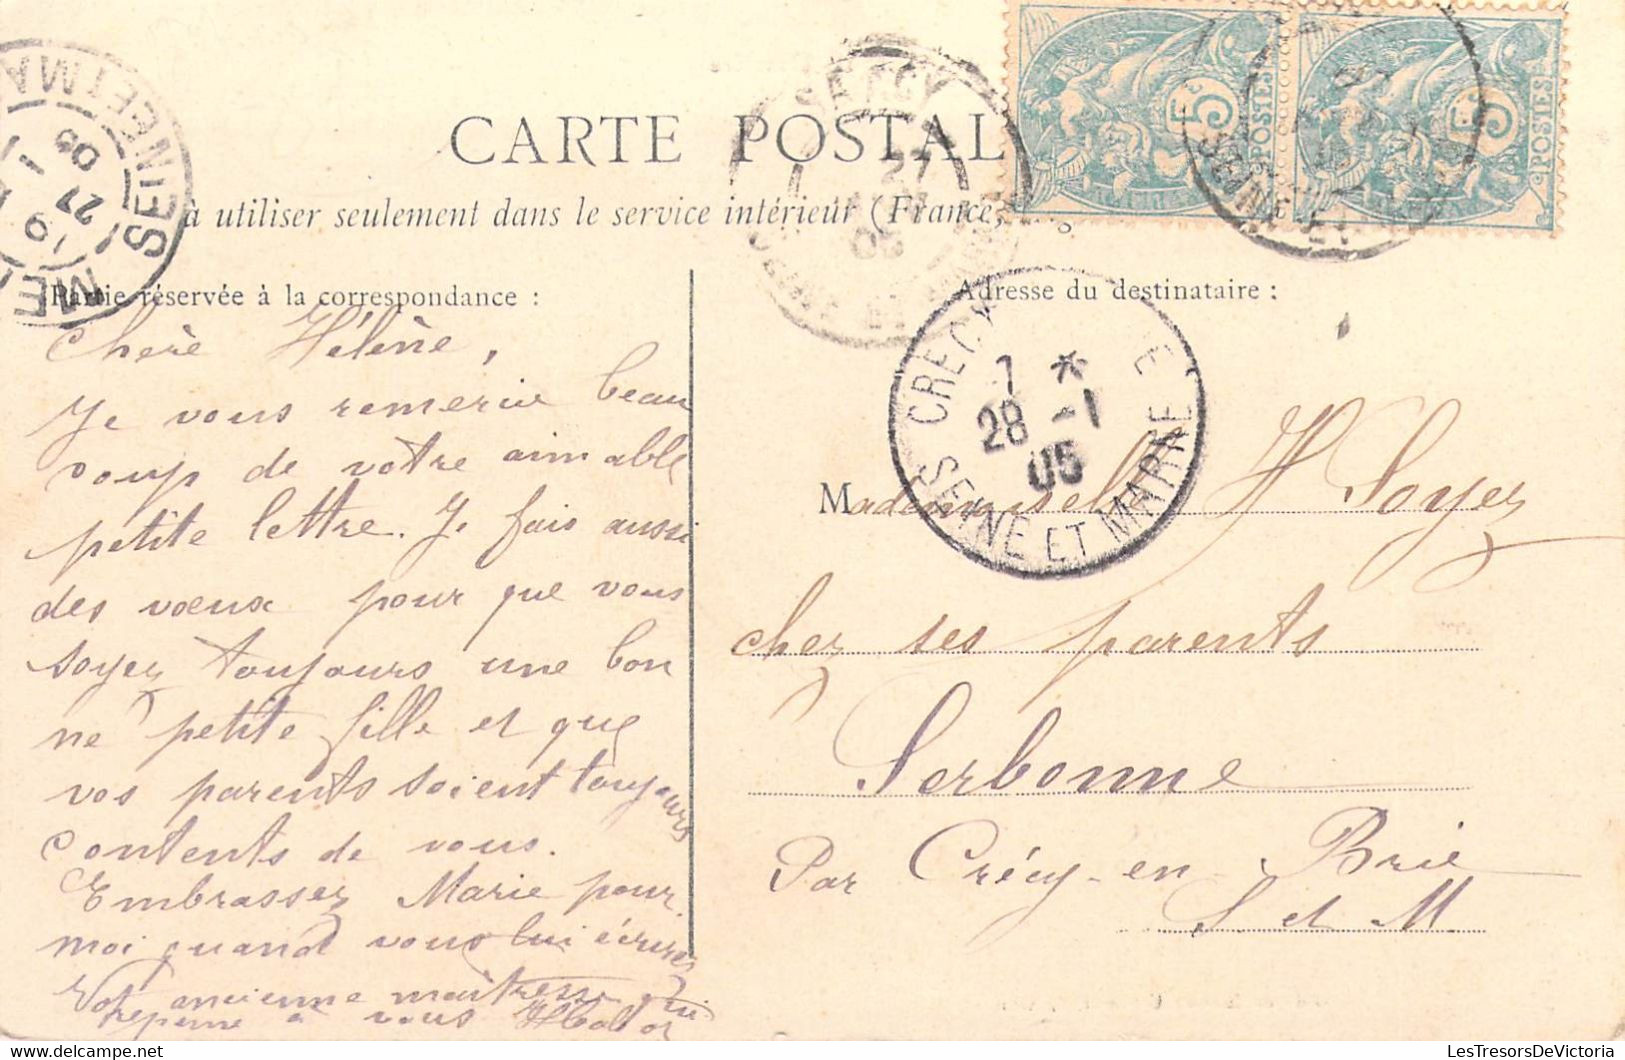 CARTE POSTAL
à utiliser seulement dans le service intérieur (France,
Partie réservée à la correspondance :
Chère Hélène,
Je vous remercie beau
coup de votre aimable
petite lettre. Je fais aussi
des vœux pour que vous
soyez toujours une bon
ne petite fille et que
vos parents soient toujours
contents de vous.
Embrassez Marie pour
moi quand vous lui écrirez
Votre ancienne maîtresse qui
pense à vous
Adresse du destinataire :
Mademoiselle H Soyez
chez ses parents
Serbonne
Par Crécy-en-Brie
S et M
5
POSTES
5
POSTES
CRECY
7 *
28 -1
05
SEINE ET MARNE
SEINE ET MA
19
27
1
05
27
05
LesTresorsDeVictoria